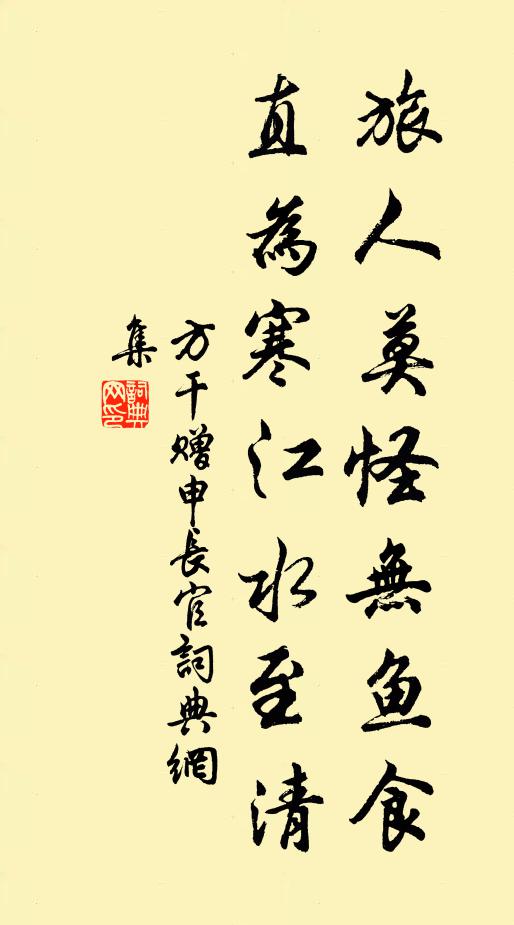 旅人莫怪無魚食
直為寒江水至清
方干贈申長官詞典網
集
詞典網印